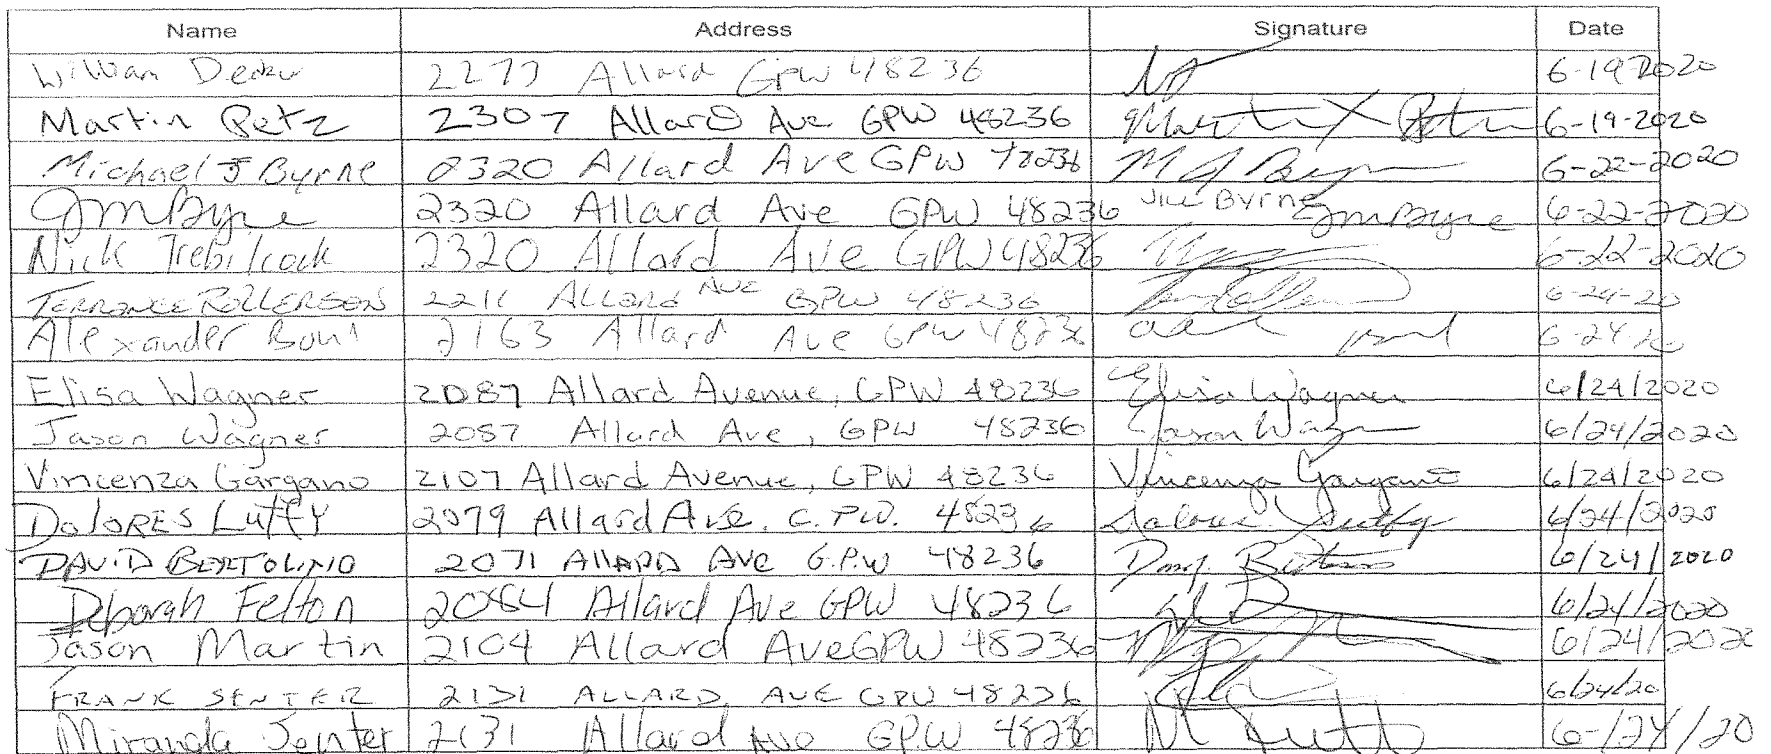 Name Address Signature Date
William 2277 Allard GPW 48236 6-19-2020
Martin Petz 2307 Allard Ave GPW 48236 6-19-2020
Michael J Byrne 2320 Allard Ave GPW 48236 6-22-2020
JmByrne 2320 Allard Ave GPW 48236 Jill Byrne JmByrne 6-22-2020
Nick Trebilcock 2320 Allard Ave GPW 48236 6-22-2020
TERRANCE ROLLERSON 2211 ALLARD AVE GPW 48236 6-24-20
Alexander 2163 Allard Ave GPW 48236 6-24-20
Elisa Wagner 2087 Allard Avenue, GPW 48236 Elisa Wagner 6/24/2020
Jason Wagner 2087 Allard Ave, GPW 48236 Jason Wagner 6/24/2020
Vincenza Gargano 2107 Allard Avenue, GPW 48236 Vincenza Gargano 6/24/2020
DOLORES LUFFY 2079 Allard Ave. G.P.W. 48236 6/24/2020
DAVID BERTOLINO 2071 ALLARD AVE G.P.W 48236 6/24/2020
Deborah Felton 2084 Allard Ave GPW 48236 6/24/2020
Jason Martin 2104 Allard Ave GPW 48236 6/24/2020
FRANK SENTER 2131 ALLARD AVE GPW 48236 6/24/20
Miranda Senter 2131 Allard Ave GPW 48236 6-/24/20